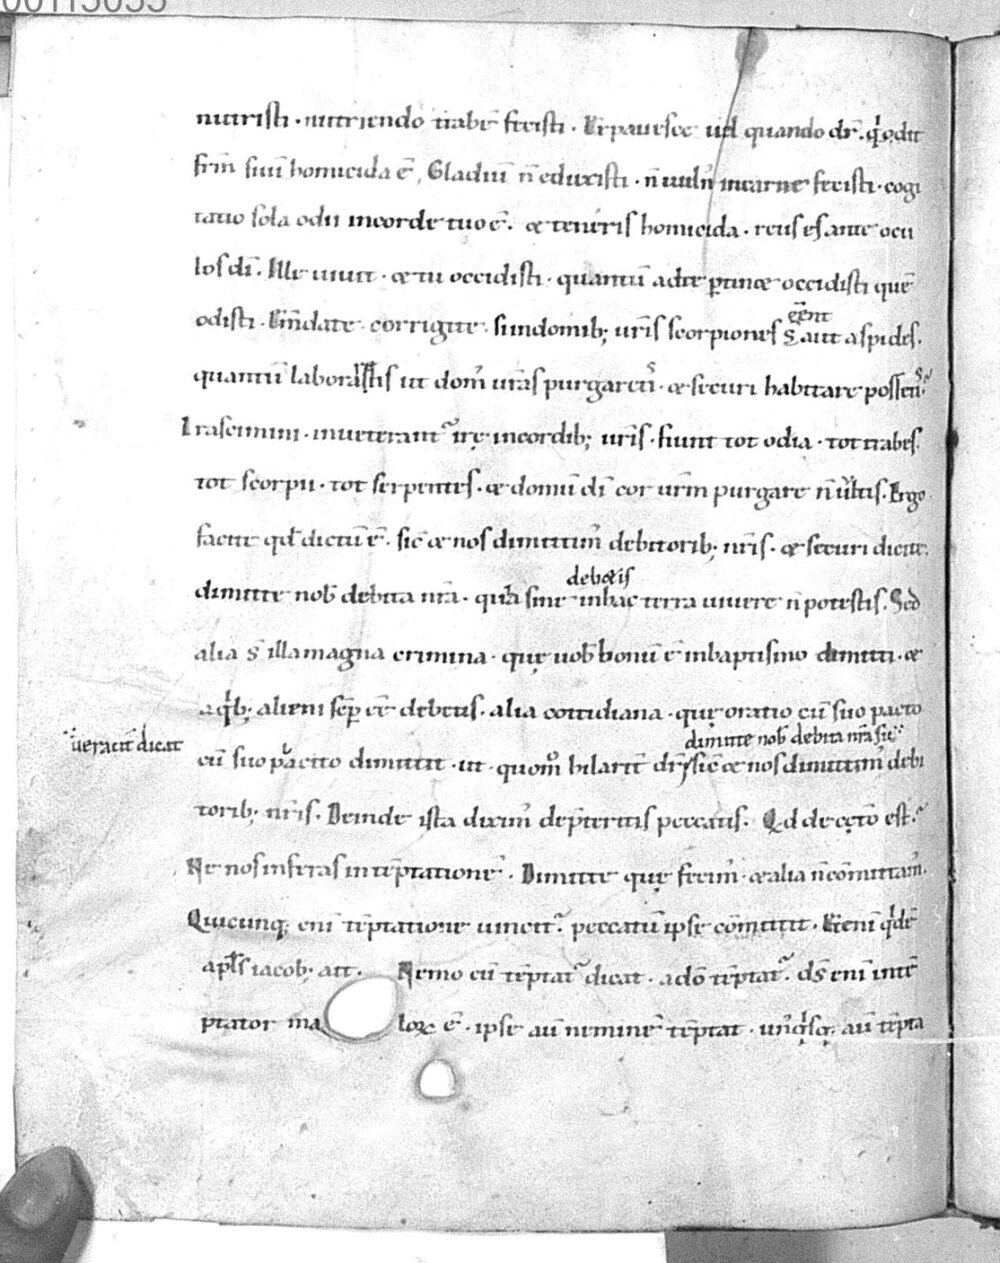 nutristi · nutriendo trabē fecisti · Expauesce uł quando dr̄ · qͥ odit
frm̄ suū homicida ē, Gladiū n̄ eduxisti · n̄ uuln᷒ incarne fecisti · cogi
tatio sola odii incorde tuo ē. & teneris homicida · reus es ante ocu
los dī. Ille uiuit · & tu occidisti · quantū adte ptin& occidisti quē
odisti · Em̄date · corrigite · sindomib; ur̄is scorpiones s̄ aut aspides.
eēnt
quantū laborastis ut dom᷒ ur̄as purgaretis · & securi habitare possetis.
Irascimini · inueterant᷑ irę incordib; ur̄is · fiunt tot odia · tot trabes.
tot scorpii · tot serpentes. & domū dī cor ur̄m purgare n̄ uultis. Ergo
facite qd̄ dictū ē. sic̄ & nos dimittim᷒ debitorib; nr̄is · & securi dicite.
debitis
dimitte nob̄ debita nr̄a · quia sine inhac terra uiuere n̄ potestis. Sed
alia s̄ illa magna crimina · quę uob̄ bonū ē inbaptismo dimitti · &
aqͥb; alieni sēp eē debetis. alia cottidiana · quę oratio cū suo pacto
dimitte nob̄ debita nr̄a sic̄
ueracit̄ dicat
cū suo pacto dimittit · ut · quom̊ hilarit̄ dr̄ sic̄ & nos dimittim᷒ debi
torib; nr̄is. Deinde ista dixim᷒ dep̄teritis peccatis. Qd decęto est.
Ne nos inferas intēptationē. Dimitte quę fecim᷒ · & alia n̄ cōmittam᷒.
Quicunq; eni tēptatione uincit᷑ peccatū ipse cōmittit. Etenī qͥdē
apłs iacob; ait. Nemo cū tēptat᷑ dicat · ado tēptat᷑. ds̄ enī intē
ptator malorū ē · ipse aū neminē tēptat · un᷒qͥsq; aū tēpta